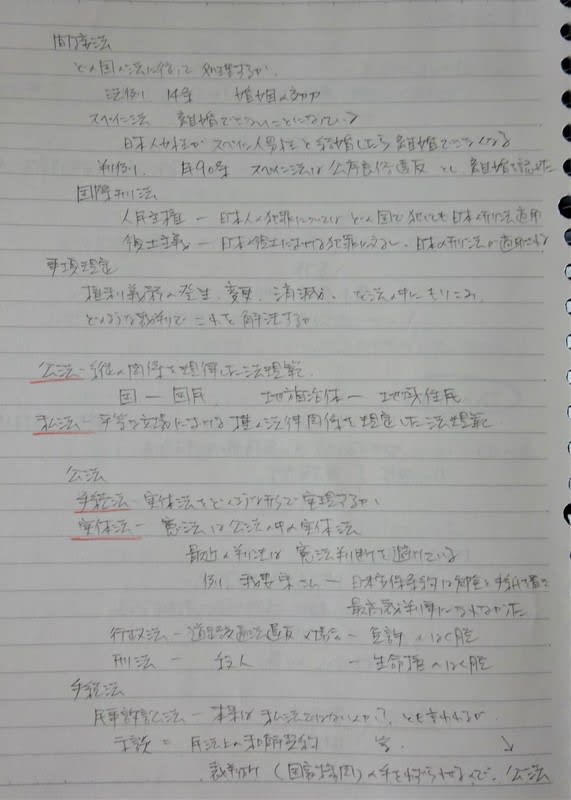 間接法
どの国の法に従って処理するか、
法例、14条 婚姻の効力
スペイン法 離婚できないことになっている
日本人女性がスペイン人男性と結婚したら離婚できなくなる
判例、 スペイン法は公序良俗違反とし離婚を認めた
国際刑法
人民主権 — 日本人の犯罪については どの国で犯しても日本の刑法適用
領土主義 — 日本領土における犯罪に対し、日本の刑法が適用される
事項規定
権利義務の発生、変更、消滅、を法の中にもりこみ、
どのような裁判でこれを解決するか
公法 — 縦の関係を規律した法規範、
国 — 国民 地方自治体 — 地域住民
私法 — 平等な立場における 法律関係を規定した法規範
公法
手続法 — 実体法をどのような形で実現するか、
実体法 — 憲法は公法の中の実体法
最近の判決は 憲法判断を避けている
例、我妻栄さん — 日米安保条約は
最高裁判事になれなかった
行政法 — 道路交通法違反の場合 — 免許のはく脱
刑法 — 殺人 — 生命権のはく脱
手続法
民事訴訟法 — 本来は私法ではないか?、とも言われるが
示談 = 民法上の和解契約 ↓
裁判所(国家機関)の手をわずらわせるので、公法